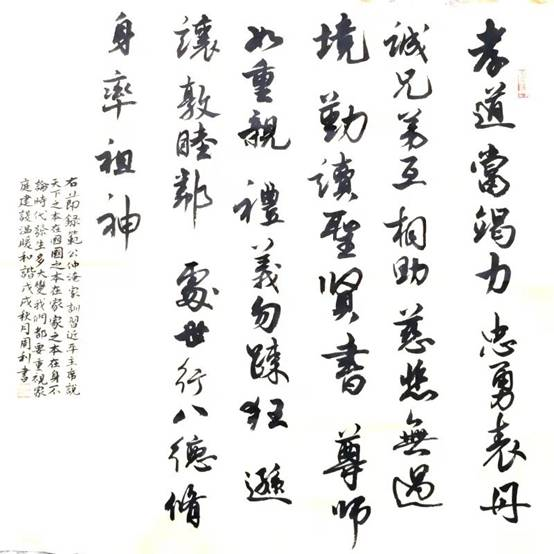 孝道當竭力 忠勇表丹
誠兄弟互相助 慈悲無過
境 勤讀聖賢書 尊師
如重親 禮義勿疎狂 遜
讓敦睦鄰 處世行八德 脩
身率祖神
右錄範公仲淹家訓習近平主席說
天下之本在國國之本在家家之本在身不
論時代發生多大變我們都要重視家
庭建設温暖和諧戊戌秋月周利書